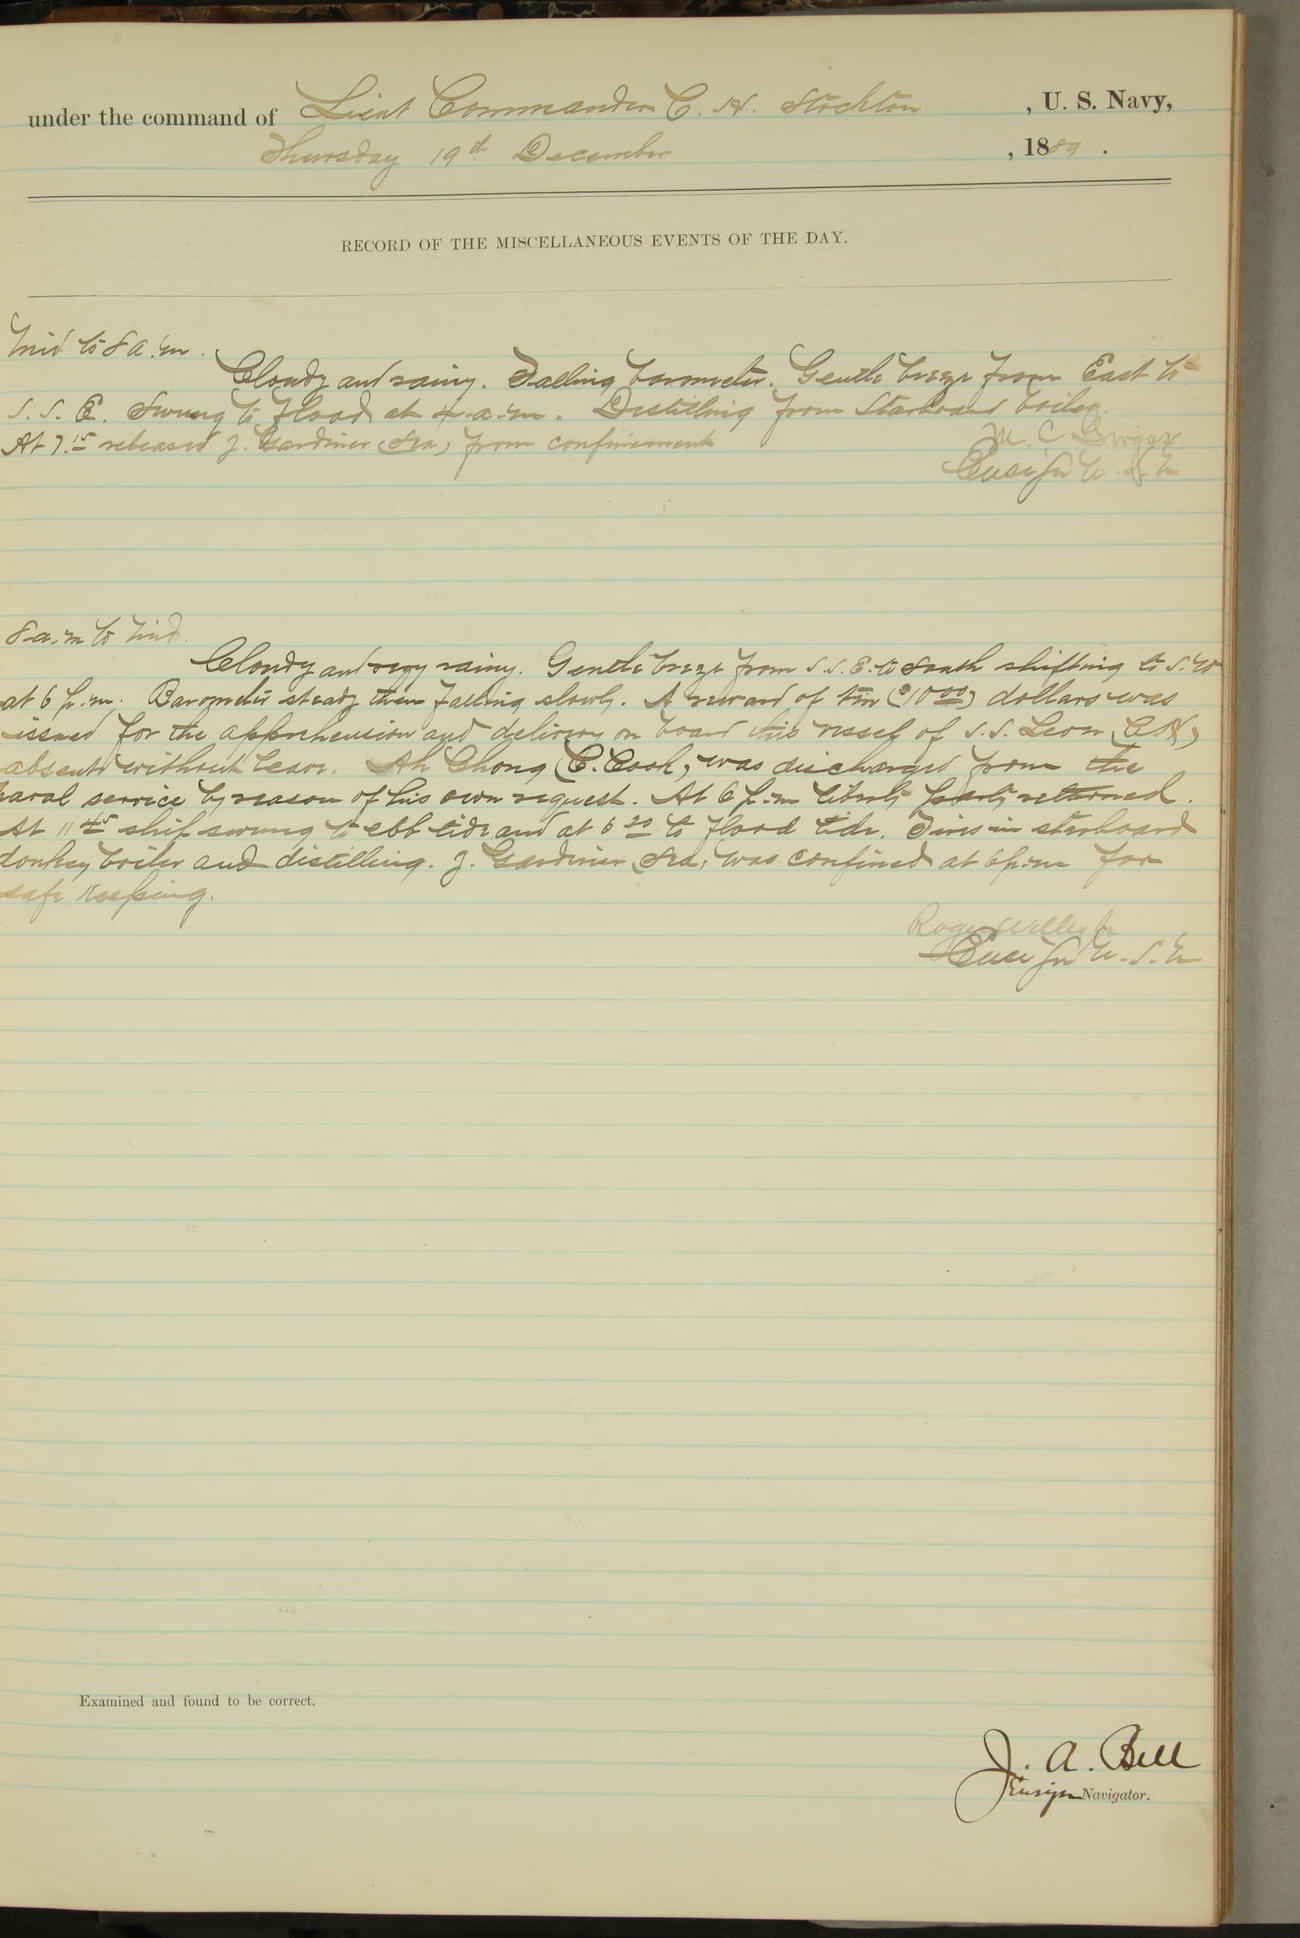 under the command of Lieut Commander C. H. Stockton, U. S. Navy,
Thursday 19th December, 1889.
RECORD OF THE MISCELLANEOUS EVENTS OF THE DAY.
Mid to 8 a.m.
Cloudy and rainy. Falling barometer. Gentle breeze from East to
S. S. E. Swung to flood at 4 a.m. Distilling from Starboard boiler.
At 7.15 released J. Gardiner (Sea) from confinement
M. C.
Ensign U. S. N
8 a.m to Mid.
Cloudy and very rainy. Gentle breeze from S. S. E. to South shifting to S. W
at 6 p.m. Barometer steady then falling slowly. A reward of ten ($10.00) dollars was
issued for the apprehension and delivery on board this vessel of S. S. Leon
absent without leave. Ah Chong (C. Cook), was discharged from the
naval service by reason of his own request. At 6 p.m liberty party returned.
At 11 45 ship swung to ebb tide and at 6 20 to flood tide. Fires in starboard
donkey boiler and distilling. J. Gardiner (Sea) was confined at 6 p.m for
safe keeping.
Roger Welles Jr
Ensign U. S. N
Examined and found to be correct.
J. A. Bell
Ensign Navigator.